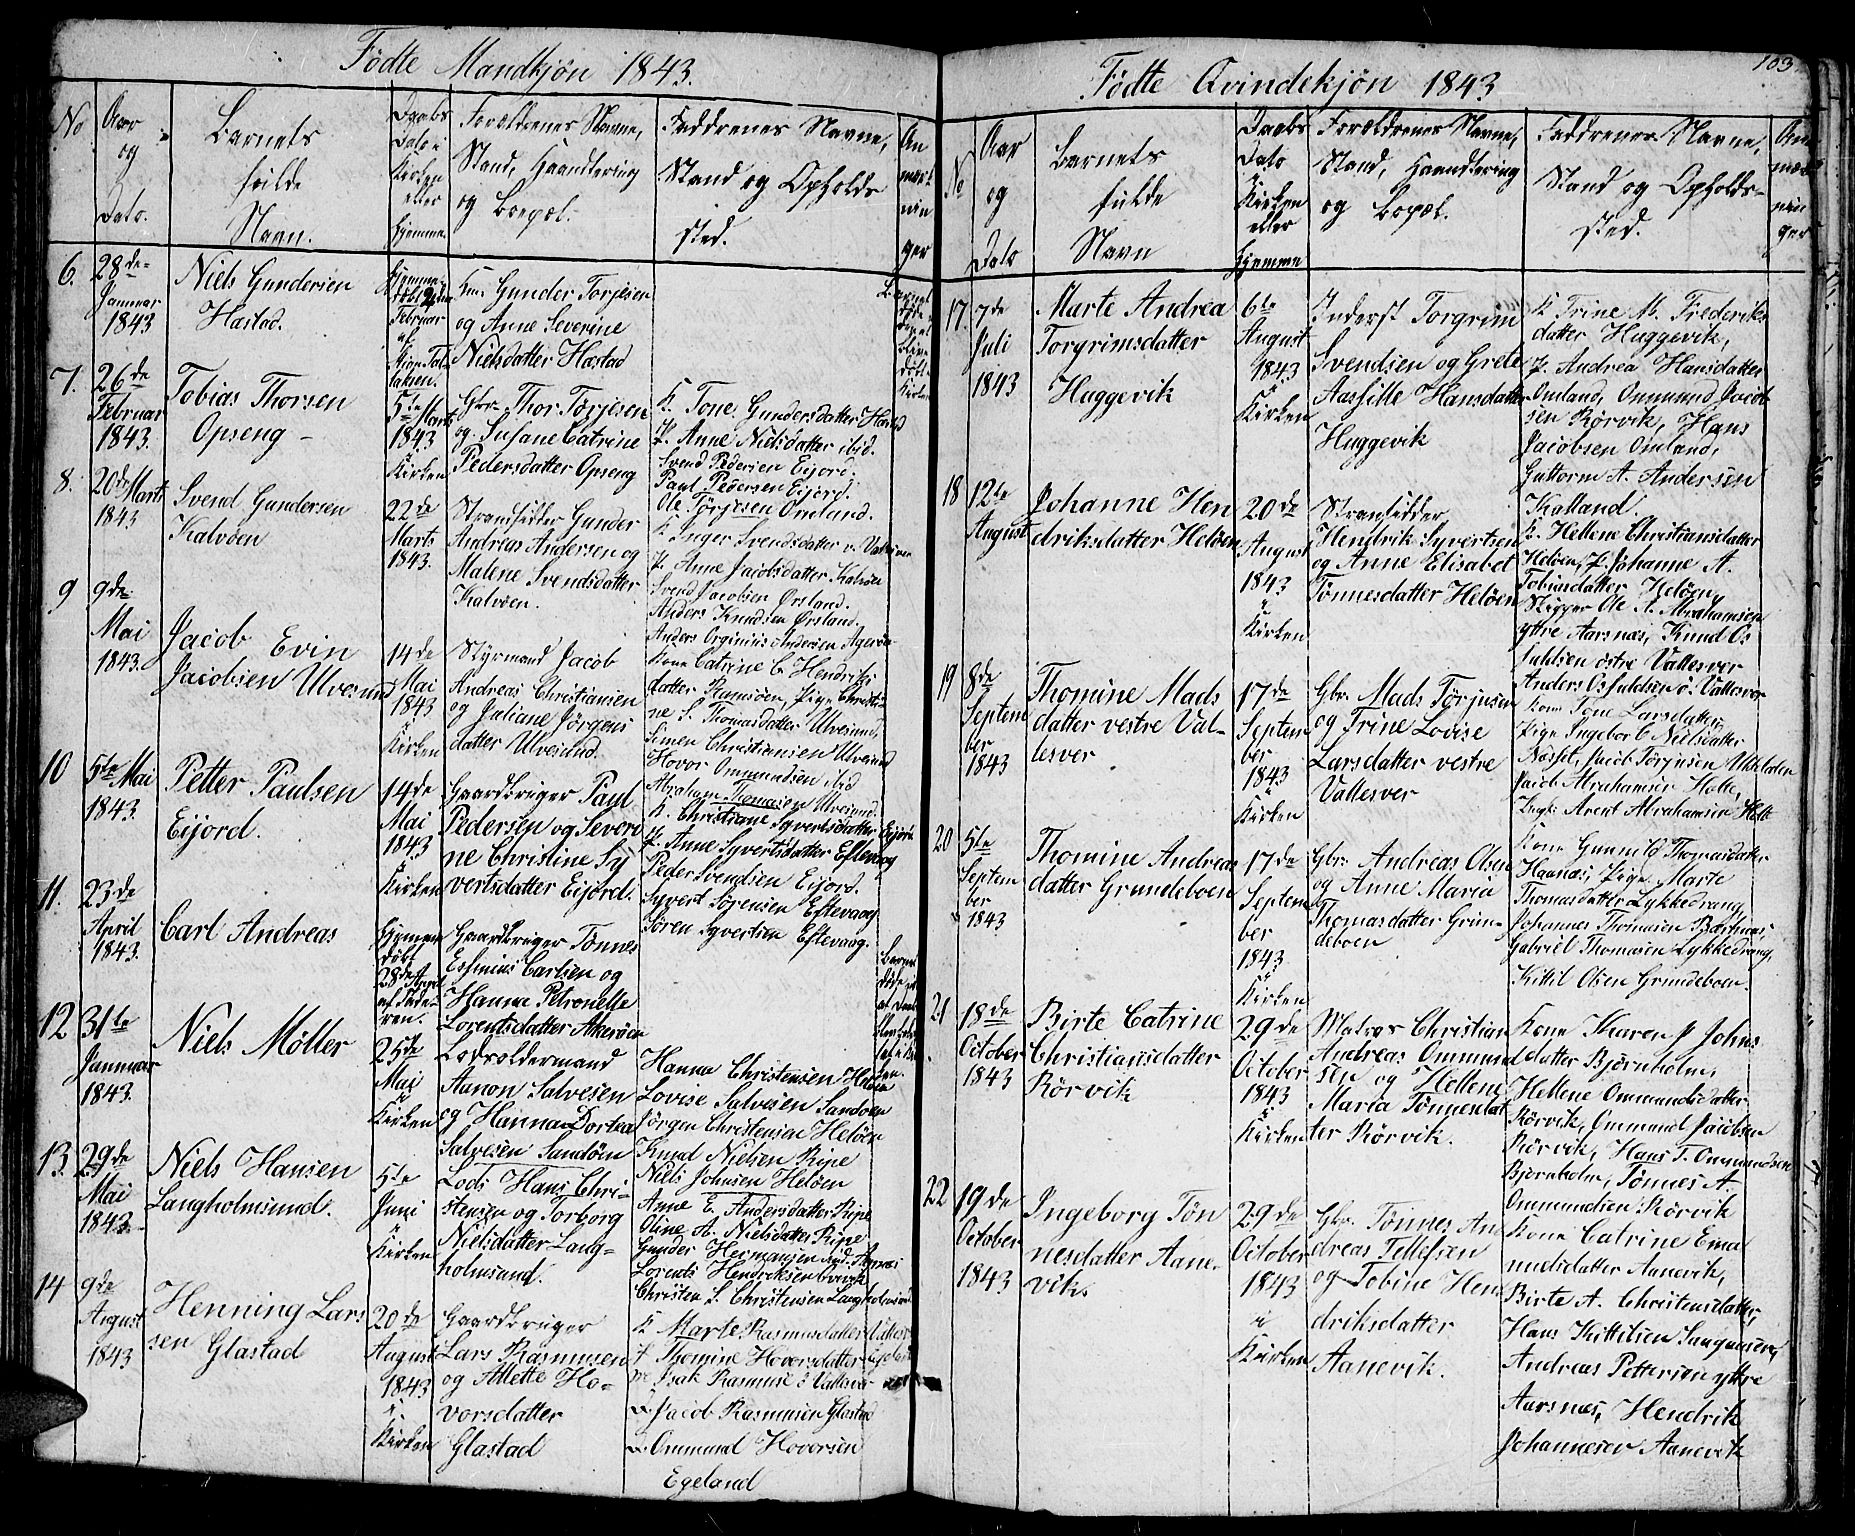 Fødte Mandkjøn 1843.
No
Aar
og
Dato.
Barnets
fulde
Navn.
Daabs
Dato i
Kirken
eller
hjemme.
Forældrenes Navne,
Stand, Haandtering
og Bopæl.
Faddrenes Navne,
Stand og Opholds
sted.
An
mærk
nin
ger
6.
28de
Januar
1843
Niels Gundersen
Hastad.
Hjemme
døbt 2den
Februar
af
Gunder Torjesen
og Anne Severine
Nielsdatter Hastad
Barnet
7.
26de
Februar
1843.
Tobias Thorsen
Opseng -
5te Marts
1843
Kirken
Gbr. Thor Torjesen
og Susane Catrine
Pedersdatter Opseng
K. Tone Gundersdatter
P. Anne Nielsdatter ibid.
Svend Pedersen Eijord.
Paul Pedersen Eijord.
Ole Torjesen Omland.
8.
20de Marts
1843
Svend Gundersen
Kalvøen
22de
Marts
1843.
Strandsidder Gunder
Andreas Andersen og
Malene Svendsdatter
Kalvøen.
K. Inger Svendsdatter
P. Anne Jacobsdatter Kalvøen
Svend Jacobsen Ørsland.
Anders Knudsen Ørsland.
Anders Orginius Andersen
9
9de
Mai
1843.
Jacob Evin
Jacobsen Ulvesund
14de
Mai
1843
Kirken
Styrmand Jacob
Andreas Christiansen
og Juliane Jørgens
datter Ulvesund.
Kone Catrine C. Hendriks
datter Ramsøen, Pige Christi-
ne S. Thomasdatter Ulvesund,
Simen Christiansen Ulvesund
Hovor Ommundsen ibid
Abraham Thomasen Ulvesund.
10
5te Mai
1843.
Petter Paulsen
Eijord.
14de
Mai
1843
Kirken
Gaardbruger Paul
Pedersen og Severi
ne Christine Sy
vertsdatter Eijord.
K. Christiane Syvertsdatter Eijord
P. Anne Syvertsdatter Eftevaag
Peder Svendsen Eijord.
Syvert Sørensen Eftevaag
Søren Syvertsen Eftevaag.
11.
23de
April
1843.
Carl Andreas
Hjemme
døbt
28de April
af Fade-
ren.
Gaardbruger Tønnes
Essinius Carlsen og
Hanna Petronelle
Lorentsdatter Akerøen
12
31te
Januar
1843.
Niels Møller
25de
Mai
i
Kirken
Lodsoldermand
Aanon Salvesen
og Hanna Dortea
Salvesen Sandøen
Hanna Christensen Heløen
Lovise Salvesen Sandøen
Jørgen Christensen Heløen
Knud Nielsen Ripe
Niels Johnsen Heløen
13.
29de
Mai
1843.
Niels Hansen
Langholmsund.
5te
Juni
i
Kirken
Lods Hans Chri-
stensen og Torborg
Nielsdatter Lang-
holmsund.
Anne E. Andersdatter Ripe
Oline A. Nielsdatter Ripe
Gunder Hermansen
Lorents Hendriksen
Christen S. Christensen Langholmsund
14
9de
August
1843
Henning Lars
sen Glastad
20de
August
1843
i
Kirken
Gaardbruger
Lars Rasmussen
og Atlette Ho-
vorsdatter
Glastad
K Marte Rasmusdatter
Thomine Hovorsdatter Egeland
Isak Rasmus
Jacob Rasmusen Glastad
Ommund Hovorsen
Egeland
103.
Fødte Qvindekjøn 1843
No
Aar
og
Dato
Barnets
fulde
Navn
Daabs
Dato
i
Kirken
eller
hjemme
Forældrenes Navne,
Stand, Haandtering
og Bopæl.
Faddrenes Navne,
Stand og Opholds-
sted.
An
mærk
nin
ger
17.
7de
Juli
1843
Marte Andrea
Torgrimsdatter
Huggevik
6te
August
1843
i
Kirken
Inderst Torgrim
Svendsen og Grete
Aassille Hansdatter
Huggevik
K Trine M. Frederiks
datter, Huggevik,
P. Andrea Hansdatter
Omland, Ommund Jacob
sen Rørvik, Hans
Jacobsen Omland,
Guttorm A. Andersen
Kalland.
18
12te
August
Johanne Hen
driksdatter Heløen
20de
August
1843
i
Kirken
Strandsidder
Hendrik Syvertsen
og Anne Elisabet
Tønnesdatter Heløen
K. Hellene Christiansdatter
Heløen, P. Johanne A.
Tobiasdatter Heløen,
Skipper Ole A. Abrahamsen
yttre Aarsnæs, Knud Os
fuldsen østre Vallesver
Anders Osfuldsen ø. Vallesver
19
8de
Septem
ber
1843
Thomine Mads
datter vestre Val-
lesver
17de
Septem
ber
1843
i
Kirken
Gbr. Mads Torjusen
og Trine Lovise
Larsdatter vestre
Vallesver
Kone Tone Larsdatter
Pige Ingeborg Nielsdatter
Jacob Torjusen
Jacob Abrahamsen Holte,
Ungk: Arent Abrahamsen Holte
20
5te
Septem
ber
1843
Thomine Andreas
datter Grundeboen
17de
Septem
ber
1843
i
Kirken
Gbr: Andreas Olsen
og Anne Maria
Thomasdatter Grun-
deboen
Kone Gunnild Thomasdatter
Haanæs, Pige Marte
Thomasdatter Lykkedrang,
Johannes Thomasen
Gabriel Thomasen Lykkedrang,
Kittil Olsen Grundeboen.
21
18de
October
1843
Birte Catrine
Christiansdatter
Rørvik
29de
October
1843
i
Kirken
Matros Christian
Andreas Ommund
sen og Hellene
Maria Tønnesdat
ter Rørvik.
Kone Karen J Johns
datter Bjørnholm,
Hellene Ommundsdatter
Rørvik, Ommund Jacobsen
Rørvik, Hans T. Ommundsen
Bjørnholm, Tønnes A
Ommundsen Rørvik
22
19de
October
1843
Ingeborg Tøn
nesdatter Aane-
vik.
29de
October
1843
i
Kirken
Gbr. Tønnes An
dreas Tellefsen
og Tobine Hen
driksdatter
Aanevik.
Kone Catrine Ema
nuelsdatter Aanevik,
Birte A. Christensdatter,
Hans Kittilsen
Andreas Pettersen yttre
Aarsnæs, Hendrik
Johannesen Aanevik